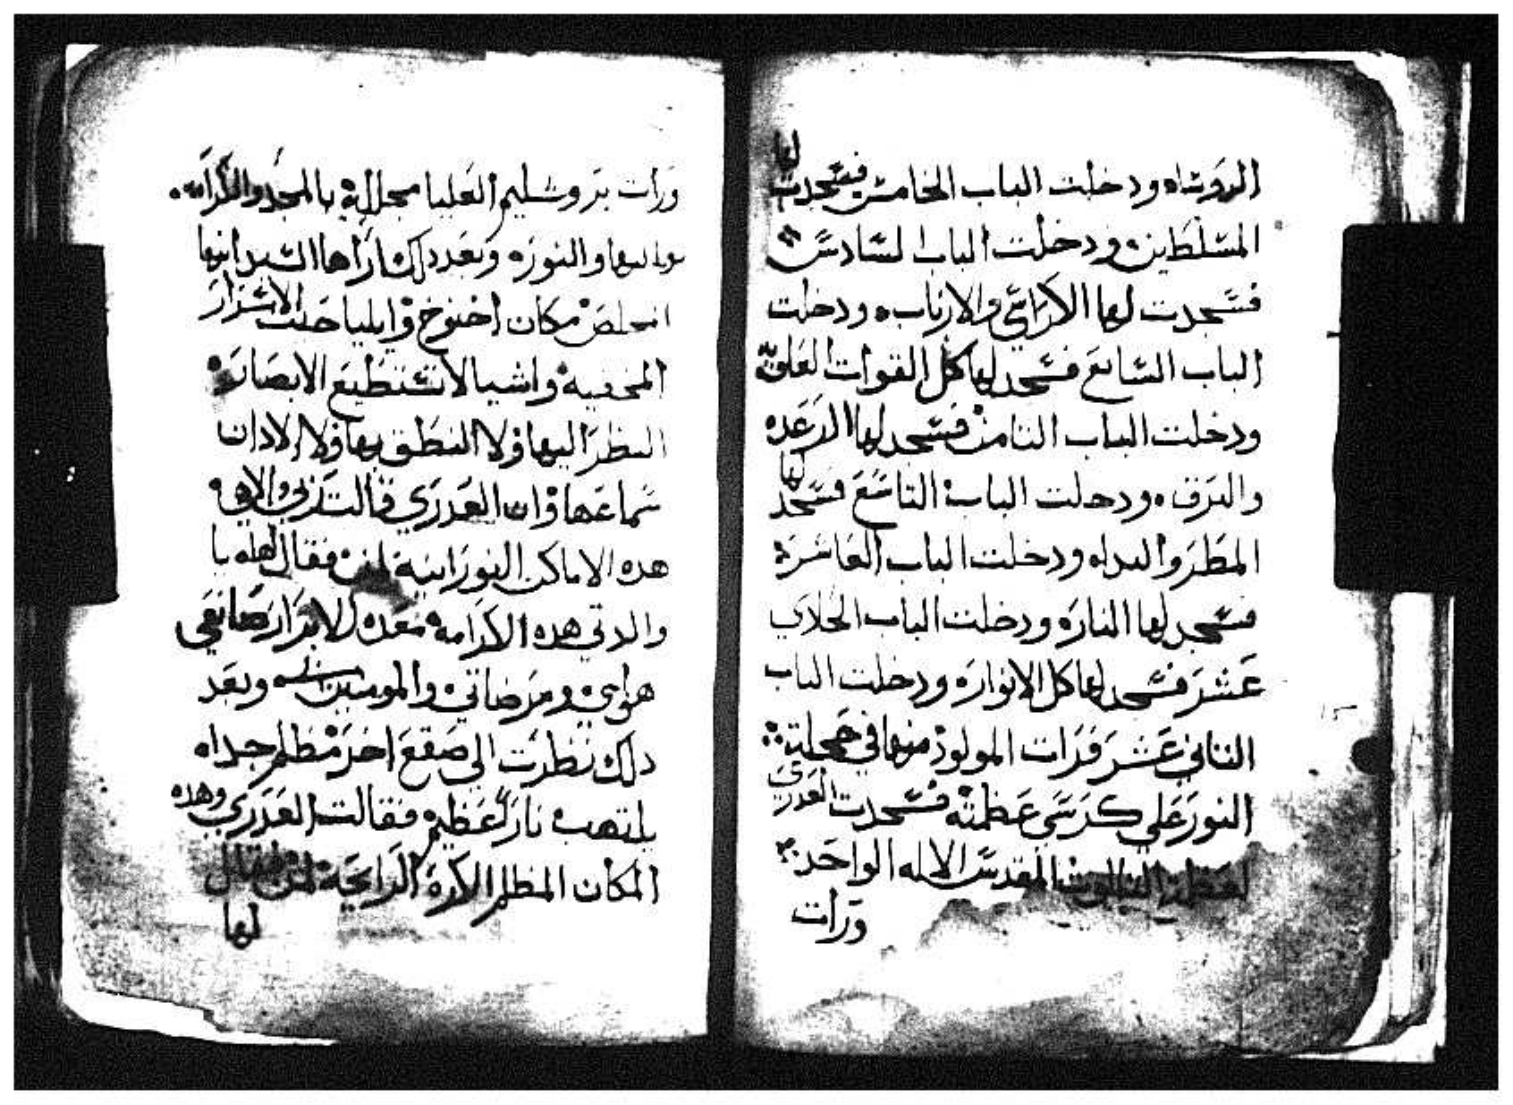 الروساه ودخلت الباب الخامس فسجدت لها
المسلطين ودخلت الباب السادس
فسجدت لها الكراسي والارباب ودخلت
الباب السابع فسجد لها كل القوات العلويه
ودخلت الباب التامن فسجد لها الرعده
والبرق ودخلت الباب التاسع فسجد لها
المطر والنداه ودخلت الباب العاشره
فسجد لها الناره ودخلت الباب الحادي
عشر فسجد لها كل الانواره ودخلت الباب
التاني عشر فرات المولود منها في حجلة
النور علي كرسي عظمته فسجدت العدري
لعظم التالوت المقدس الاله الواحد
ورات
ورات يروشليم العليا مجللة بالمجد والكرامه
والنوره وبعد دلك اراها السيد ابنها
مكان اخنوخ وايليا حيت الاسرار
المخفية واشيا لا تستطيع الابصار
النظر اليها ولا النطق بها ولا الادان
سماعها وان العدري قالت ربي والاهي
هده الاماكن النورانية لمن فقال لها يا
والدتي هده الكرامة معده للابرار صانعي
هواي ومرضاتي والمومنين وبعد
دلك نظرت الي صقع اخر مظلم جداه
يلتهب نار عظيم فقالت العدري وهده
المكان المظلم الكره الرايحة لمن فقال
لها